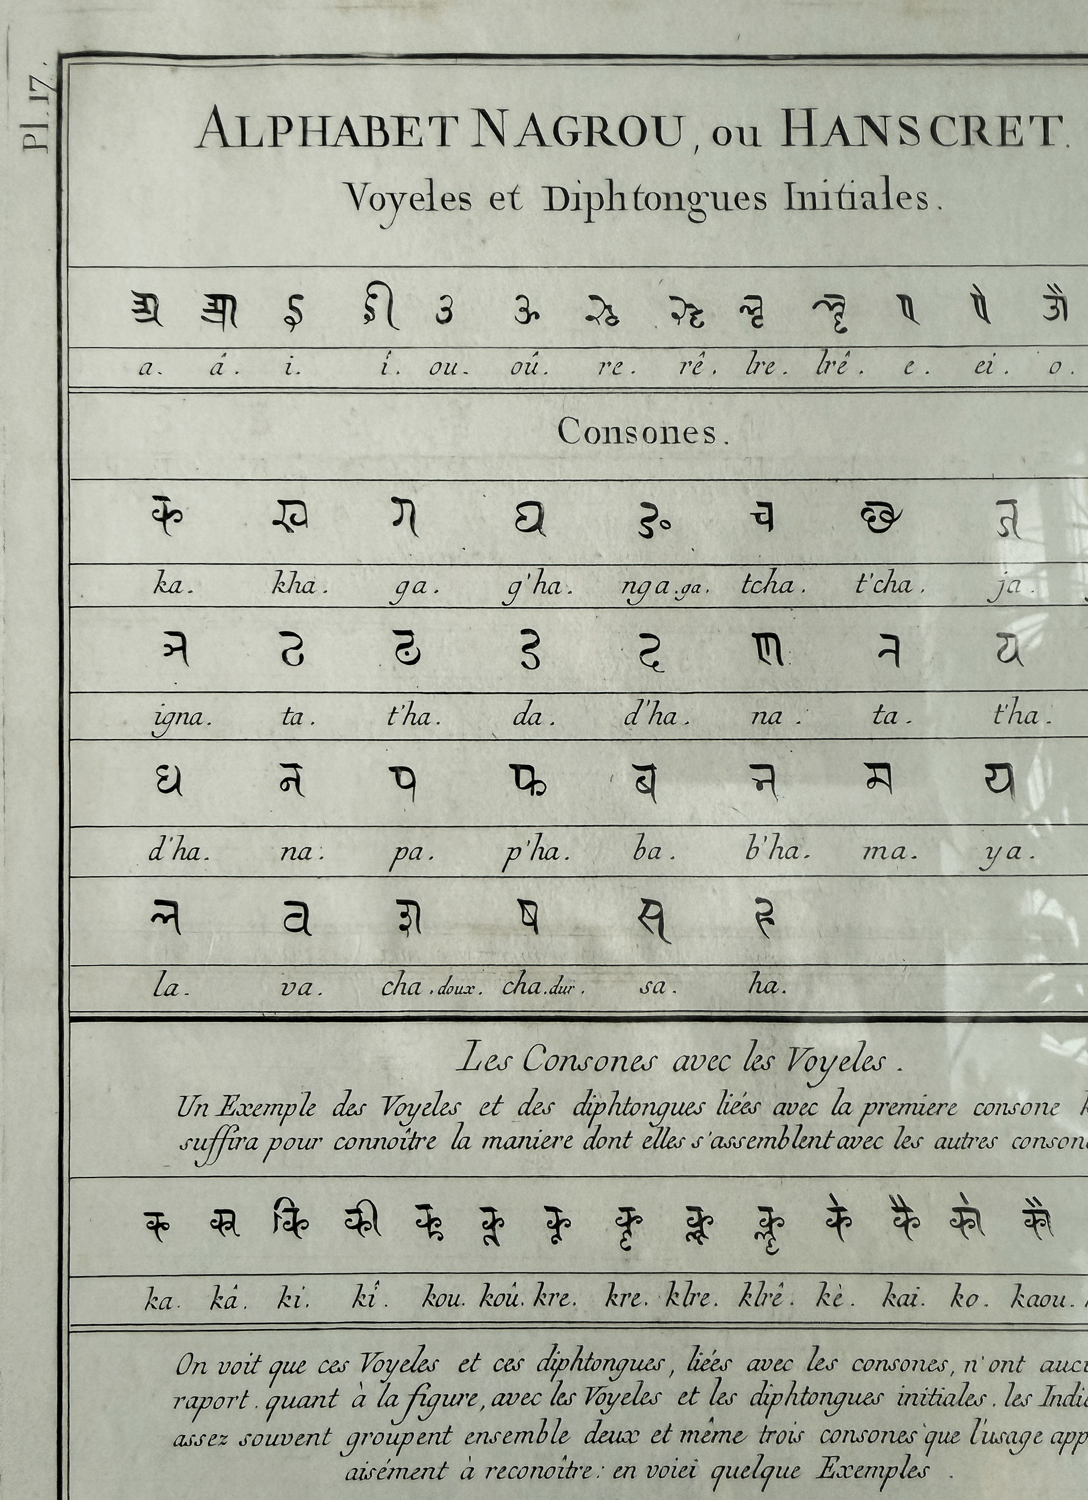 Pl. 17.
ALPHABET NAGROU, ou HANSCRET.
Voyeles et Diphtongues Initiales.
अ आ इ ई उ ऊ ऋ ॠ ऌ ॡ ए ऐ ओ
a. á. i. í. ou. oû. re. rê. lre. lrê. e. ei. o.
Consones.
क ख ग घ ङ च छ ज
ka. kha. ga. g'ha. nga.ga. tcha. t'cha. ja.
ञ ट ठ ड ढ ण त थ
igna. ta. t'ha. da. d'ha. na. ta. t'ha.
ध न प फ ब भ म य
d'ha. na. pa. p'ha. ba. b'ha. ma. ya.
ल व श ष स ह
la. va. cha.doux. cha.dur. sa. ha.
Les Consones avec les Voyeles.
Un Exemple des Voyeles et des diphtongues liées avec la premiere consone
suffira pour connoître la maniere dont elles s'assemblent avec les autres
क का कि की कु कू कृ कॄ कॢ कॣ के कै को कौ
ka. kâ. ki. kî. kou. koû. kre. kre. klre. klrê. kè. kai. ko. kaou.
On voit que ces Voyeles et ces diphtongues, liées avec les consones, n'ont
raport. quant à la figure, avec les Voyeles et les diphtongues initiales. les
assez souvent groupent ensemble deux et même trois consones que l'usage
aisément à reconoître: en voiei quelque Exemples.